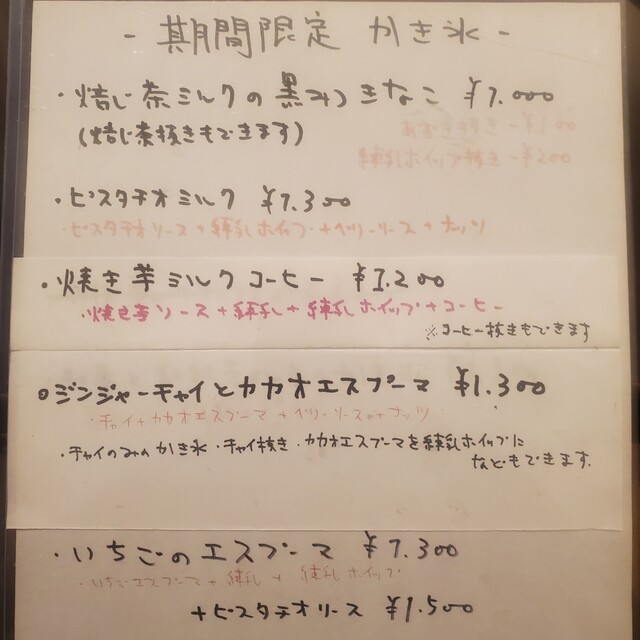 - 期間限定 かき氷 -
・焙じ茶ミルクの黒みつきなこ ¥1.000
(焙じ茶抜きもできます)
あずき抜き -¥100
練乳ホイップ抜き -¥200
・ピスタチオミルク ¥1.300
・ピスタチオソース+練乳ホイップ+ベリーソース+ナッツ
・焼き芋ミルクコーヒー ¥1.200
・焼き芋ソース+練乳+練乳ホイップ+コーヒー
※コーヒー抜きもできます
・ジンジャーチャイとカカオエスプーマ ¥1.300
・チャイ+カカオエスプーマ+ベリーソース+ナッツ
・チャイのみのかき氷 ・チャイ抜き ・カカオエスプーマを練乳ホイップに
などもできます.
・いちごのエスプーマ ¥1.300
・いちごエスプーマ+練乳+練乳ホイップ
+ピスタチオソース ¥1.500